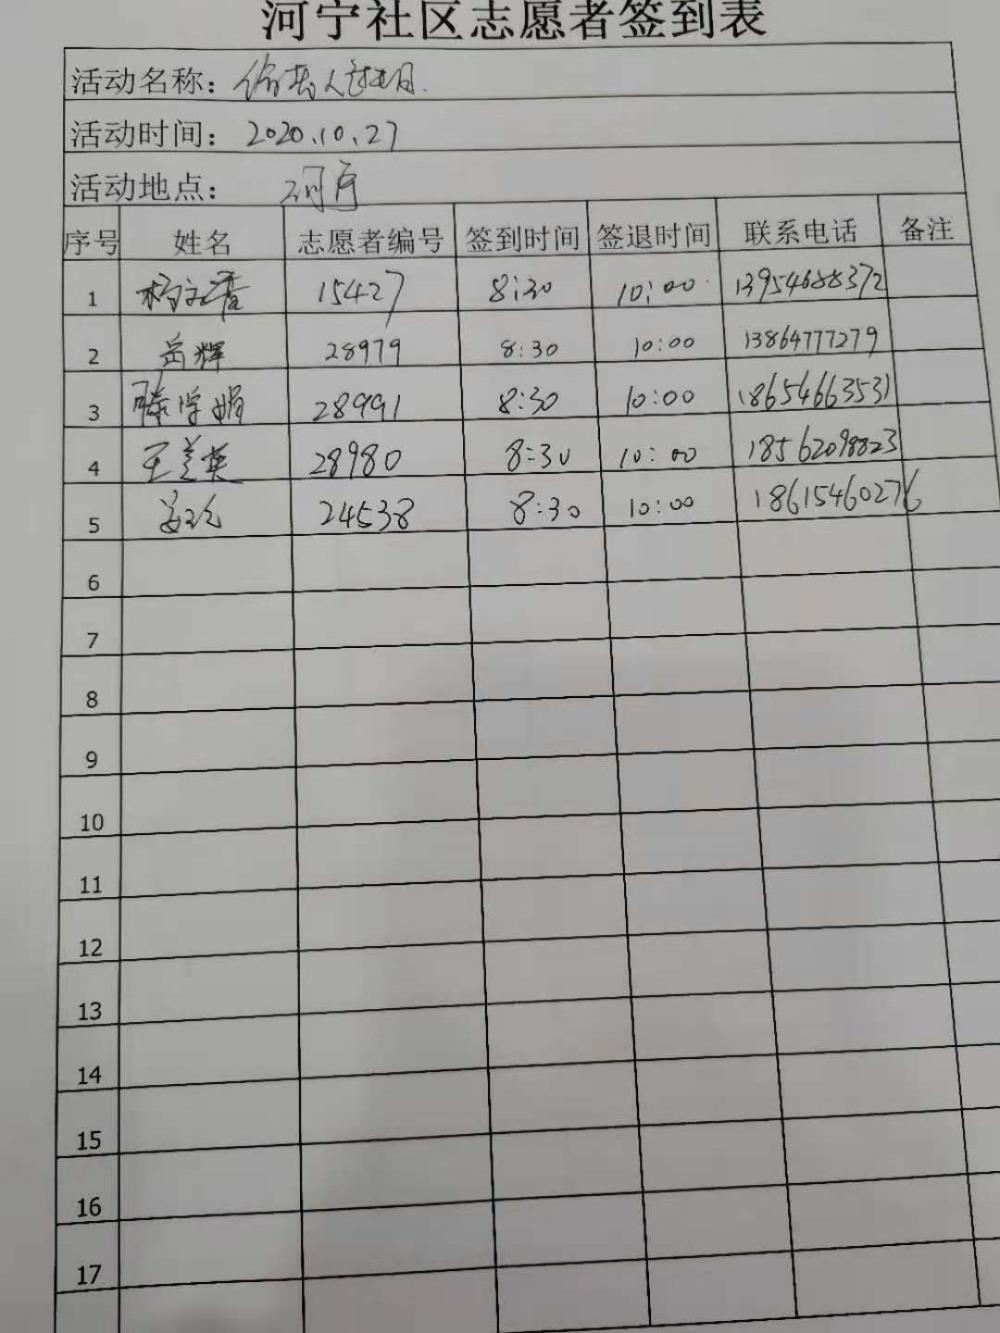 河宁社区志愿者签到表
活动名称：
活动时间： 2020.10.27
活动地点： 河宁
序号 姓名 志愿者编号 签到时间 签退时间 联系电话 备注
1 杨文香 15427 8:30 10:00 13954688372
2 岳辉 28979 8:30 10:00 13864777279
3 滕学娟 28991 8:30 10:00 18654663531
4 王兰英 28980 8:30 10:00 18562098823
5 24538 8:30 10:00 18615460276
6
7
8
9
10
11
12
13
14
15
16
17